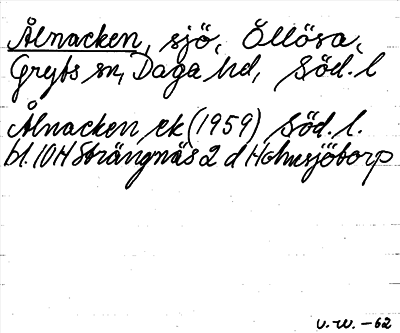 Ålnacken, sjö, Öllösa,
Gryts sn, Daga hd, Söd. l
Ålnacken ek (1959) Söd. l.
bl. 10H Strängnäs 2 d Holmsjötorp
v. W. – 62